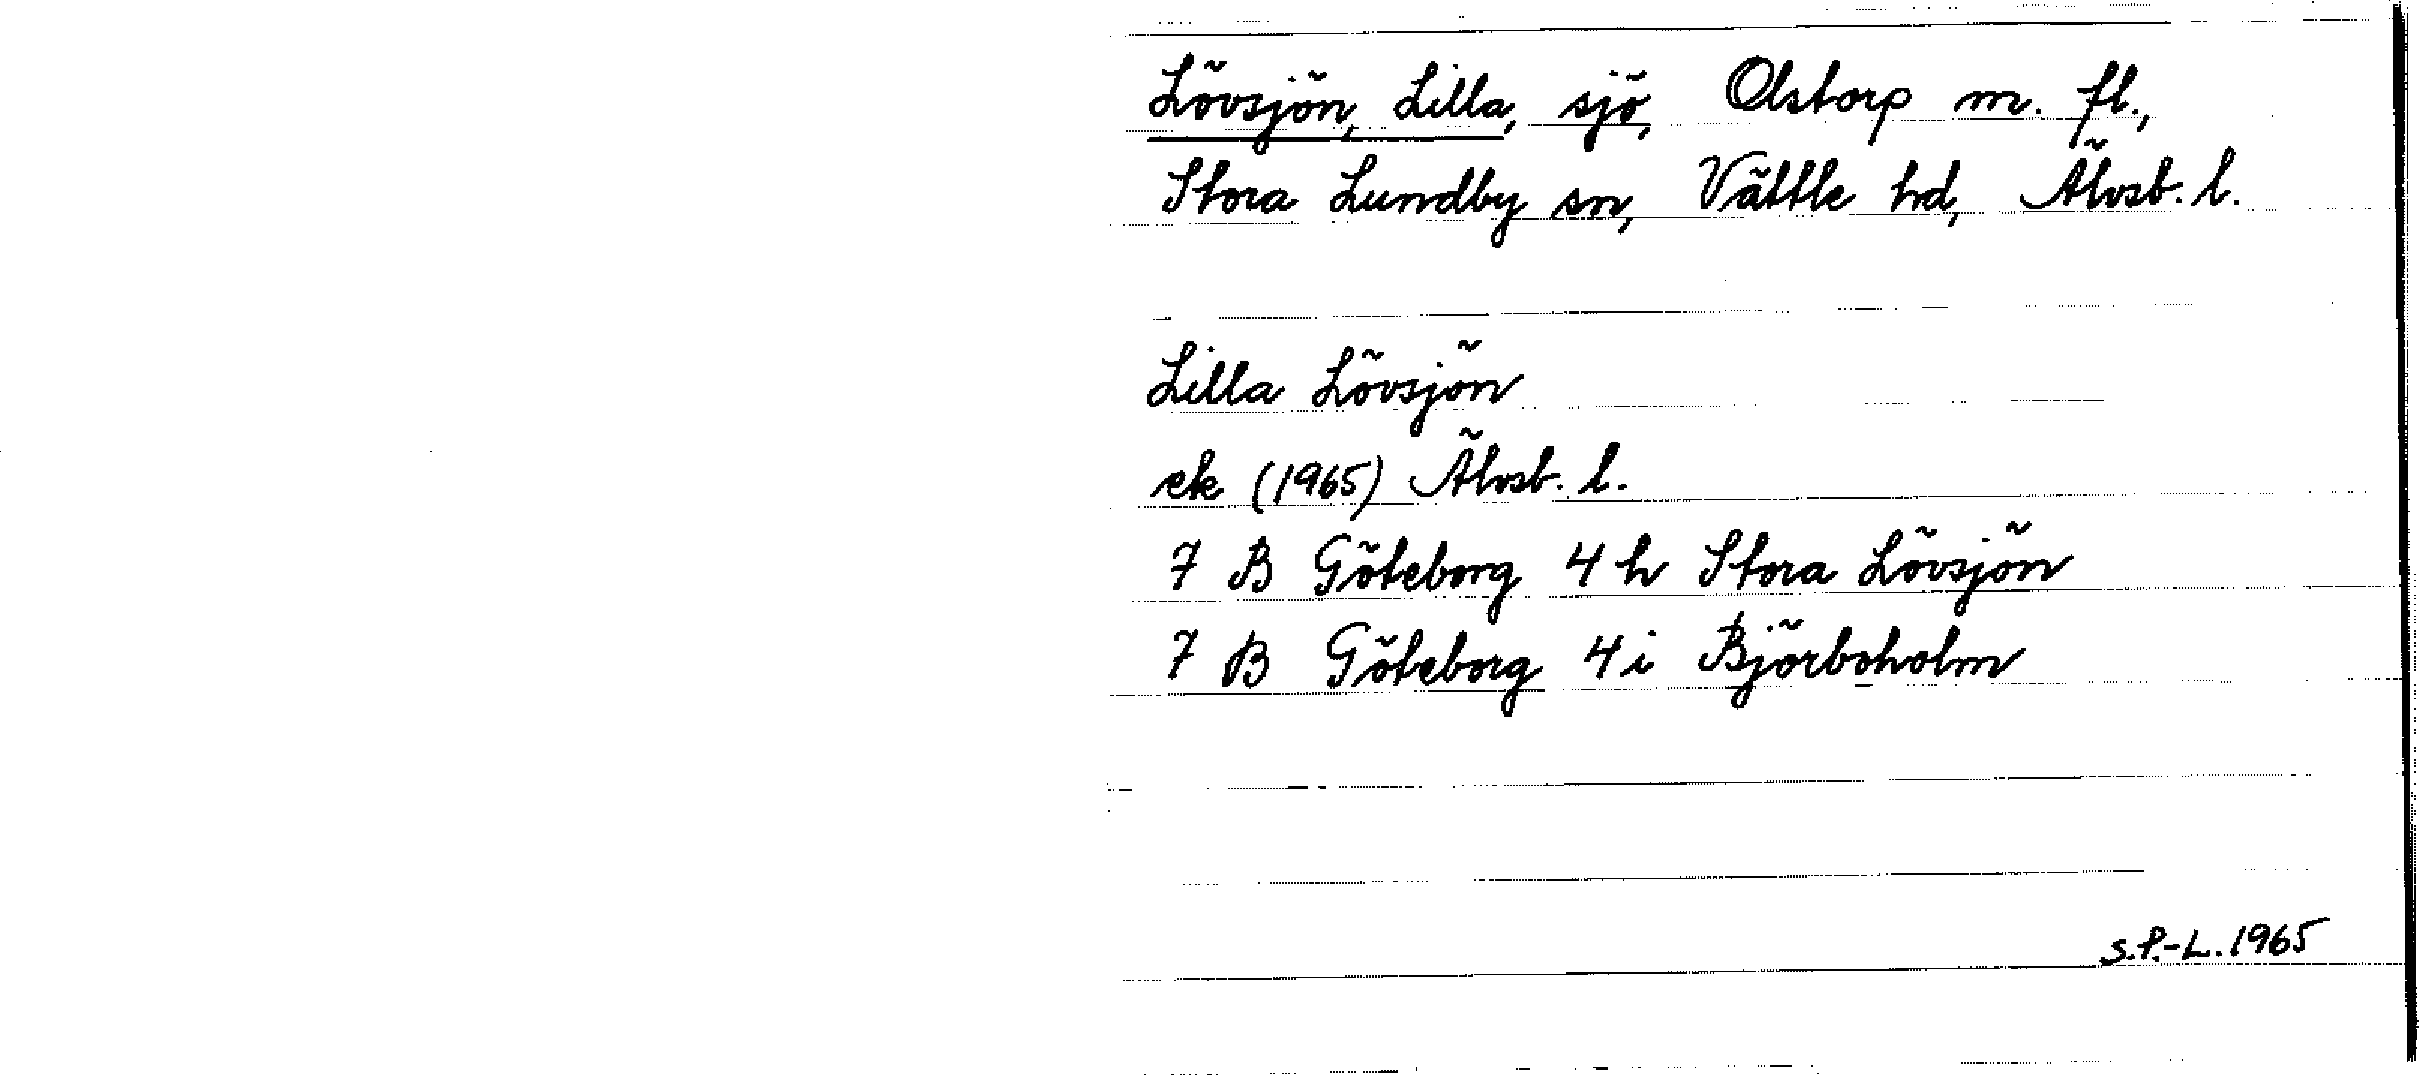 Lövsjön, Lilla, sjö, Olstorp m. fl.,
Stora Lundby sn, Vättle hd, Älvsb. l.
Lilla Lövsjön
ek (1965) Älvsb. l.
7 B Göteborg 4 h Stora Lövsjön
7 B Göteborg 4 i Björboholm
S.P.-L. 1965